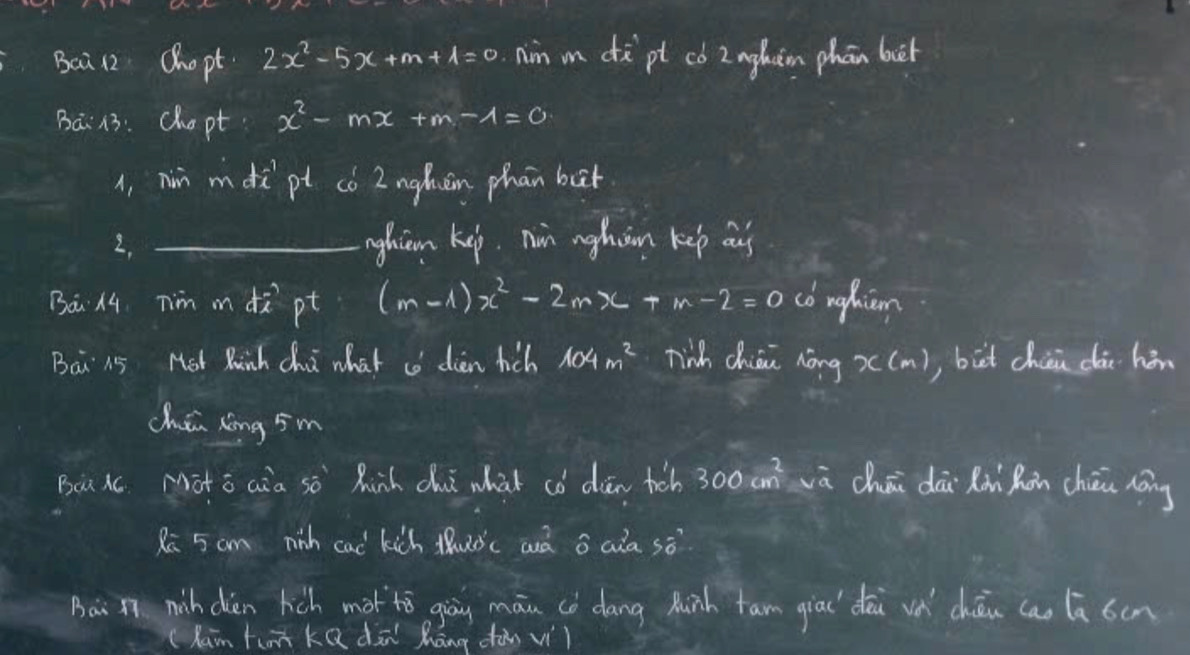 Bài 12 Cho pt: 2x² - 5x + m + 1 = 0. Tìm m để pt có 2 nghiệm phân biệt
Bài 13: Cho pt: x² - mx + m - 1 = 0
1, Tìm m để pt có 2 nghiệm phân biệt.
2, ____________ nghiệm kép. Tìm nghiệm kép ấy
Bài 14. Tìm m để pt (m-1)x² - 2mx + m - 2 = 0 có nghiệm.
Bài 15 Một hình chữ nhật có diện tích 104 m². Tính chiều rộng x (m), biết chiều dài hơn
chiều rộng 5 m
Bài 16. Một ô cửa sổ hình chữ nhật có diện tích 300 cm² và chiều dài lớn hơn chiều rộng
là 5 cm Tính các kích thước của ô cửa sổ.
Bài 17. Tính diện tích một tờ giấy màu có dạng hình tam giác đều với chiều cao là 6 cm
(làm tròn KQ đến hàng đơn vị)